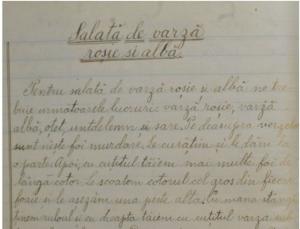 Salată de varză
roșie si albă.
Pentru salată de varză roșie și albă ne tre
buie următoarele lucruri: varză roșie, varză
albă, oțet, untdelemn si sare. Pe deasupra verzelor
sunt niște foi murdare, le curatim și le dăm la
o parte. Apoi, cu cuțitul tăiem mai multe foi de
lângă cotor. Le scoatem cotorul cel gros din fiecare
foaie si le asezăm una peste alta. Cu mana stângă
ținem ruloul si cu dreapta tăiem cu cuțitul varza